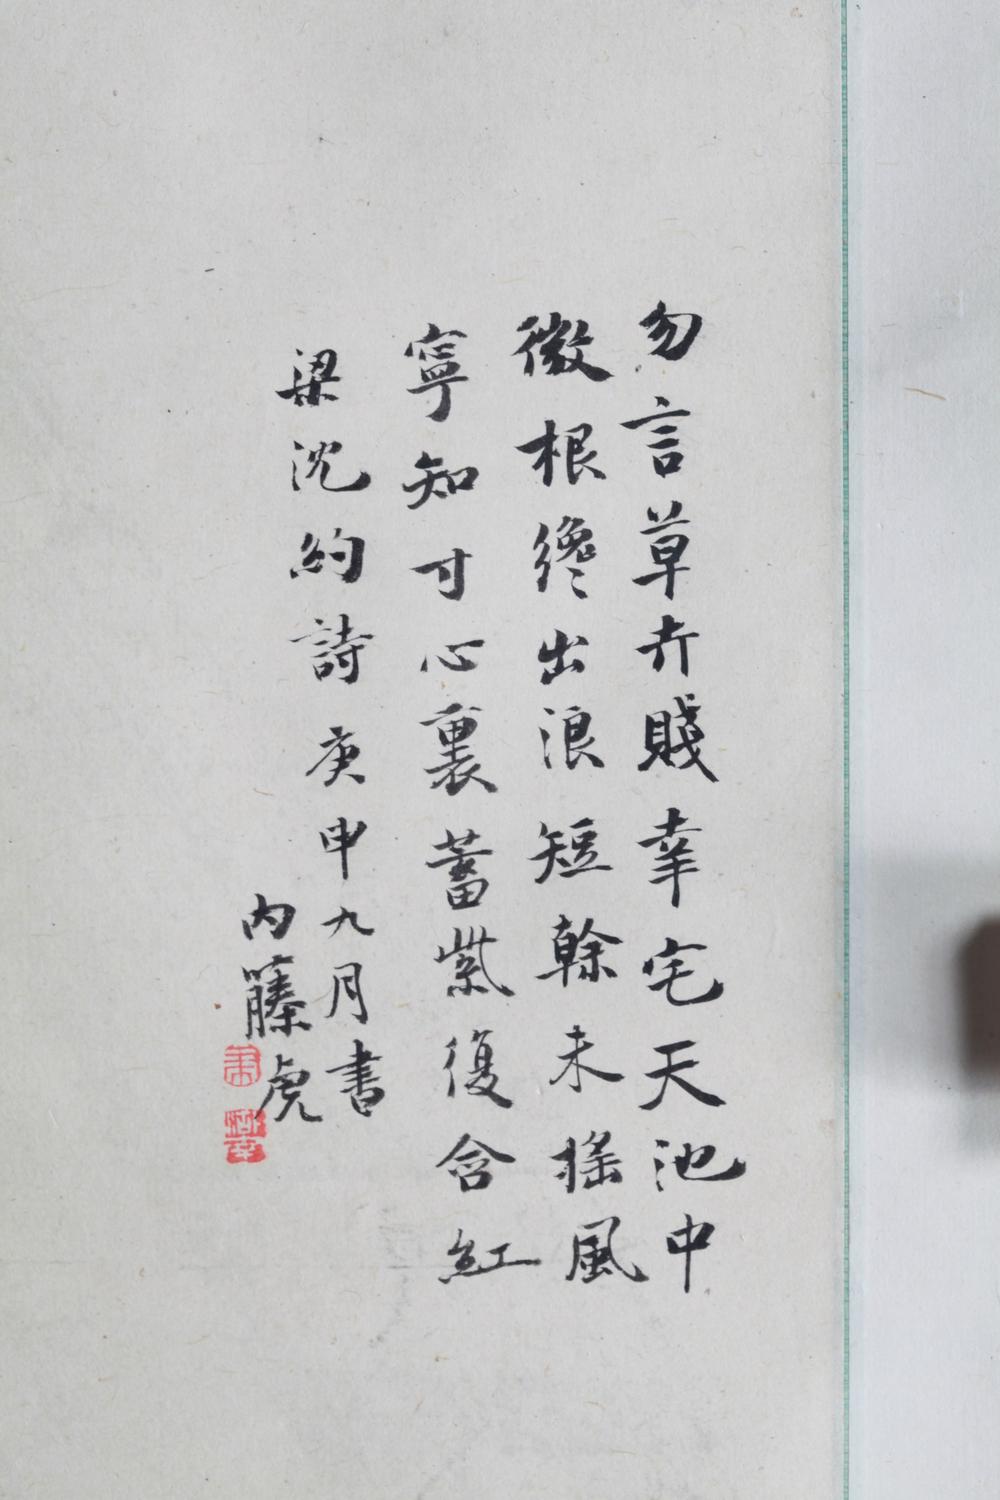 勿言草卉賤幸宅天池中
微根纔出浪短榦未搖風
寧知寸心裏蓄紫復含紅
梁沈約詩庚申九月書
内藤虎